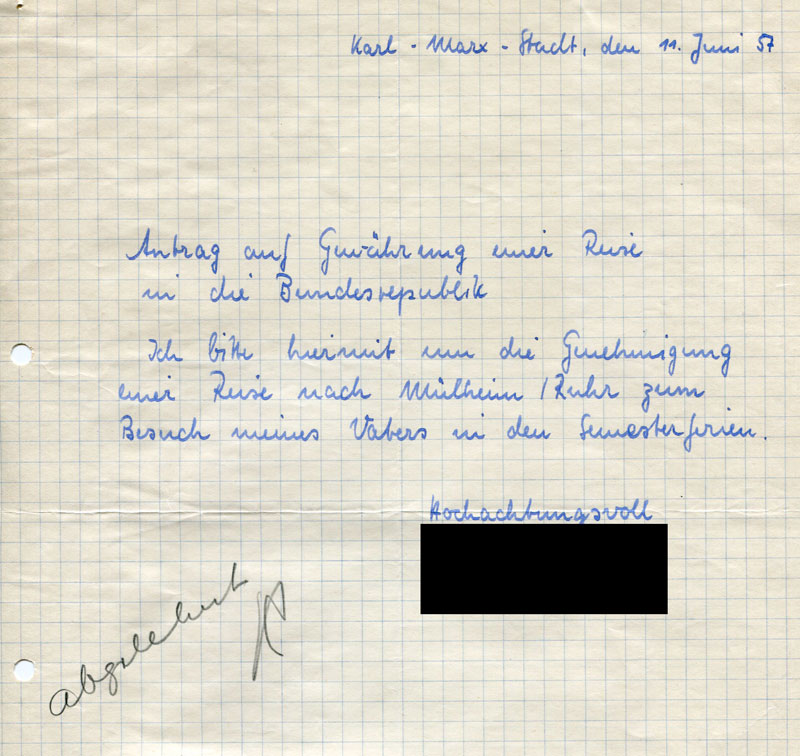 Karl-Marx-Stadt, den 11. Juni 57
Antrag auf Gewährung einer Reise
in die Bundesrepublik
Ich bitte hiermit um die Genehmigung
einer Reise nach Mülheim/Ruhr zum
Besuch meines Vaters in den Semesterferien.
Hochachtungsvoll
abgelehnt